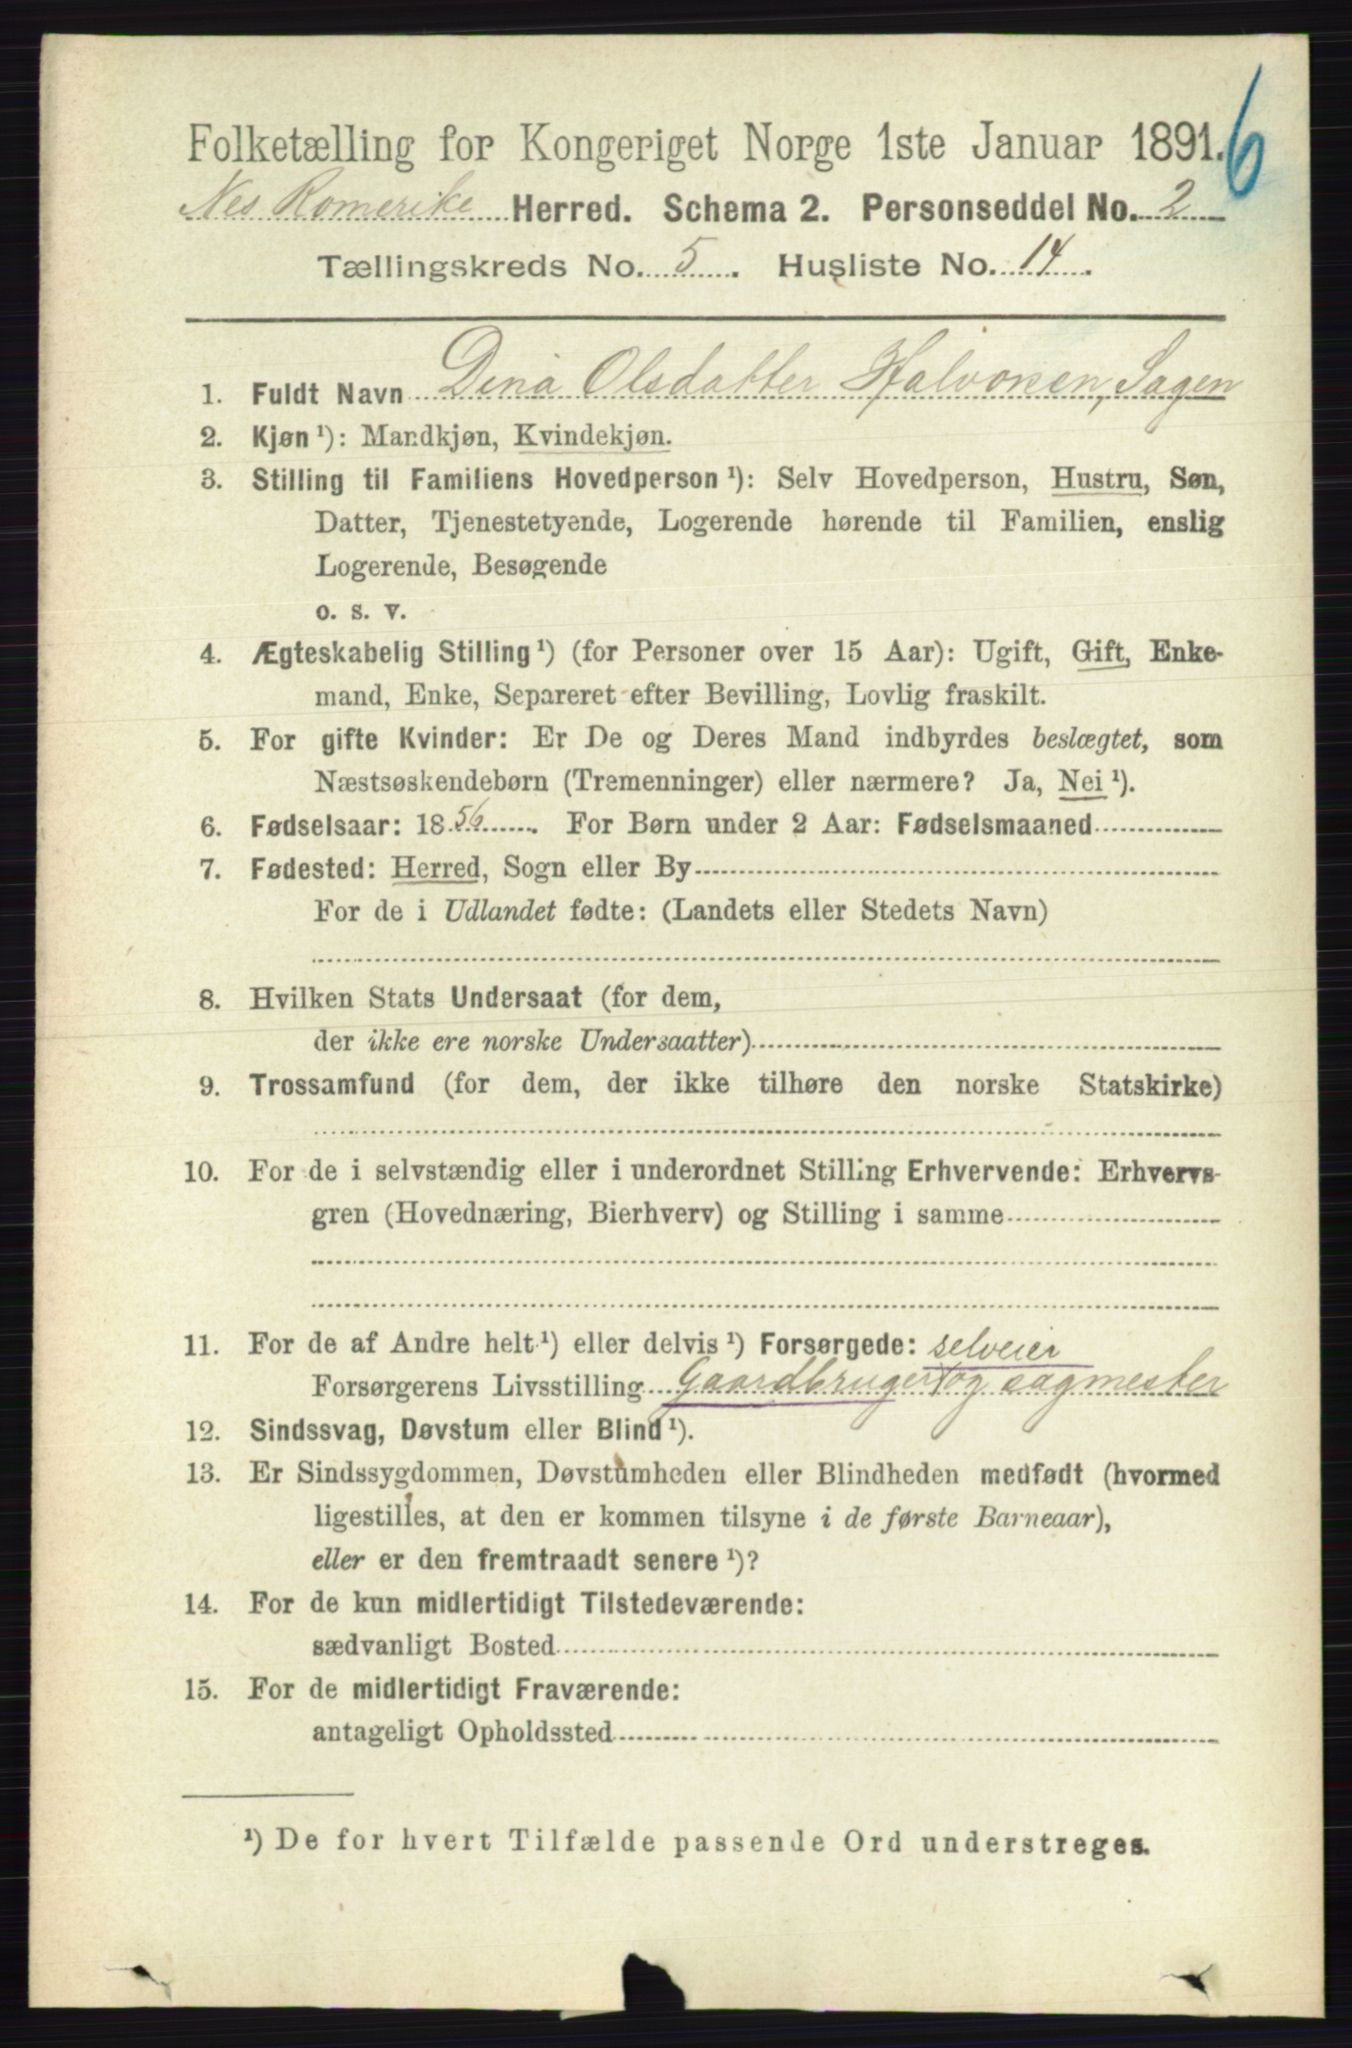 6
Folketælling for Kongeriget Norge 1ste Januar 1891.
Nes Romerike Herred. Schema 2. Personseddel No. 2
Tællingskreds No. 5. Husliste No. 14.
1. Fuldt Navn Dina Olsdatter Halvorsen, Sagen
2. Kjøn ¹): Mandkjøn, Kvindekjøn.
3. Stilling til Familiens Hovedperson ¹): Selv Hovedperson, Hustru, Søn,
Datter, Tjenestetyende, Logerende hørende til Familien, enslig
Logerende, Besøgende
o. s. v.
4. Ægteskabelig Stilling ¹) (for Personer over 15 Aar): Ugift, Gift, Enke-
mand, Enke, Separeret efter Bevilling, Lovlig fraskilt.
5. For gifte Kvinder: Er De og Deres Mand indbyrdes beslægtet, som
Næstsøskendebørn (Tremenninger) eller nærmere? Ja, Nei ¹).
6. Fødselsaar: 1856. For Børn under 2 Aar: Fødselsmaaned
7. Fødested: Herred, Sogn eller By
For de i Udlandet fødte: (Landets eller Stedets Navn)
8. Hvilken Stats Undersaat (for dem,
der ikke ere norske Undersaatter)
9. Trossamfund (for dem, der ikke tilhøre den norske Statskirke)
10. For de i selvstændig eller i underordnet Stilling Erhvervende: Erhvervs-
gren (Hovednæring, Bierhverv) og Stilling i samme
11. For de af Andre helt ¹) eller delvis ¹) Forsørgede: selveier
Forsørgerens Livsstilling Gaardbruger og sagmester
12. Sindssvag, Døvstum eller Blind ¹).
13. Er Sindssygdommen, Døvstumheden eller Blindheden medfødt (hvormed
ligestilles, at den er kommen tilsyne i de første Barneaar),
eller er den fremtraadt senere ¹)?
14. For de kun midlertidigt Tilstedeværende:
sædvanligt Bosted
15. For de midlertidigt Fraværende:
antageligt Opholdssted
¹) De for hvert Tilfælde passende Ord understreges.